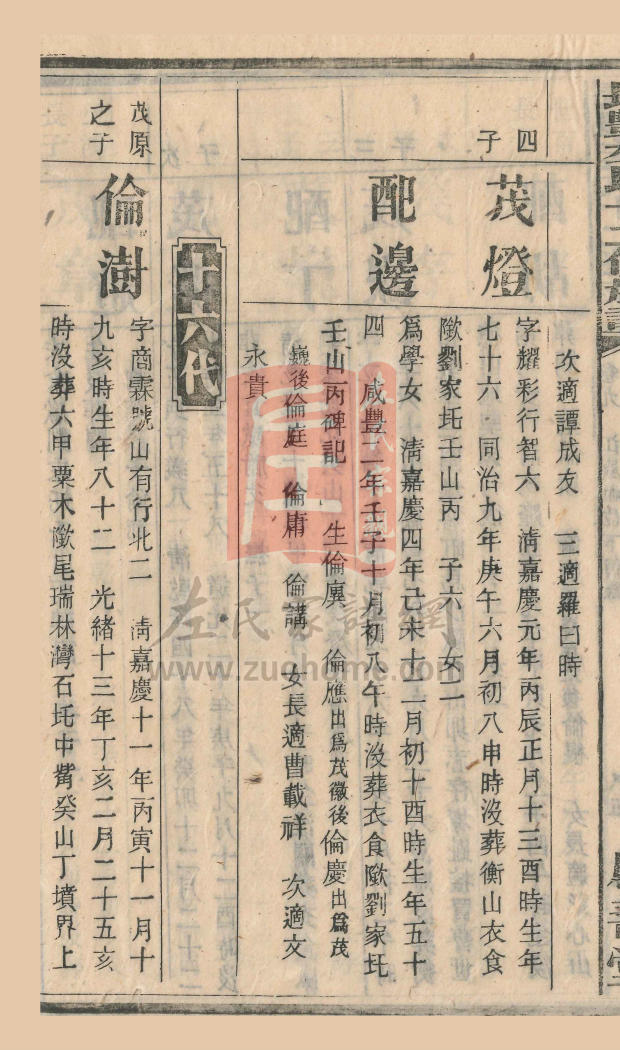 次適譚成友　三適羅日時
四子
茂燈
字耀彩行智六　淸嘉慶元年丙辰正月十三酉時生年
七十六　同治九年庚午六月初八申時沒葬衡山衣食
㘭劉家圫壬山丙　子六　女二
配邊
爲學女　淸嘉慶四年己未十二月初十酉時生年五十
四　咸豐二年壬子十月初八午時沒葬衣食㘭劉家圫
壬山丙碑記　生倫廙　倫應出爲茂徽後倫慶出爲茂
巍後倫庭　倫庸　倫講　女長適曹載祥　次適文
永貴
十六代
茂原之子
倫澍
字商霖號山有行兆二　淸嘉慶十一年丙寅十一月十
九亥時生年八十二　光緒十三年丁亥二月二十五亥
時沒葬六甲粟木㘭尾瑞林灣石圫中觜癸山丁墳界上
左氏家譜網
www.zuohome.com